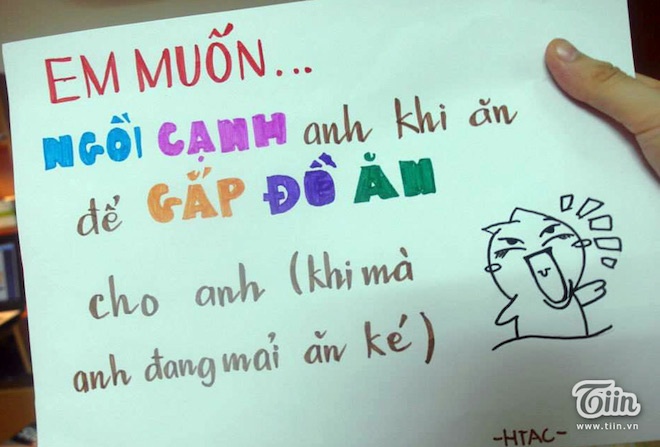 EM MUỐN...
NGỒI CẠNH anh khi ăn
để GẮP ĐỒ ĂN
cho anh (khi mà
anh đang mải ăn ké)
-HTAC-
Tiin
www.tiin.vn